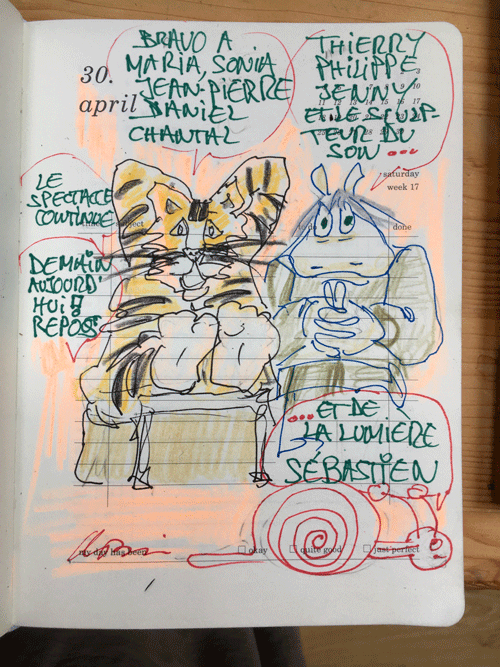 30.
april
BRAVO A
MARIA, SONIA
JEAN-PIERRE
DANIEL
CHANTAL
THIERRY
PHILIPPE
JENNY
ET LE SCULP-
TEUR DU
SON ...
saturday
week 17
LE
SPECTACLE
CONTINUE
to do
done
DEMAIN
AUJOURD'
HUI
REPOS
... ET DE
LA LUMIERE
SÉBASTIEN
my day has been
okay
quite good
just perfect